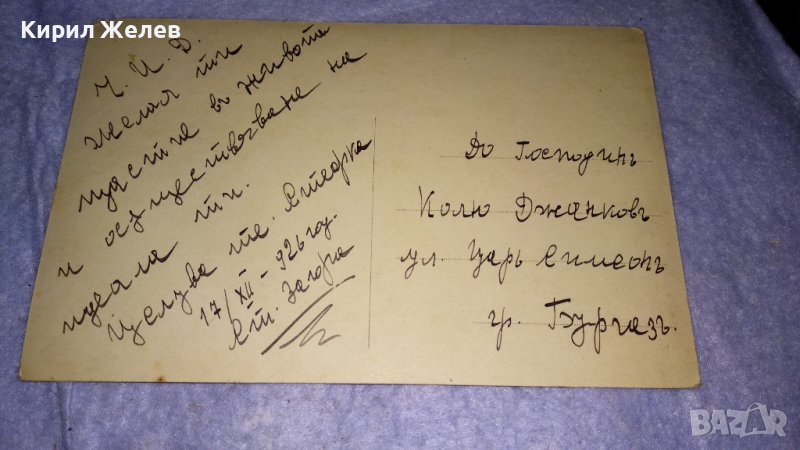 Кирил Желев
Ч. И. Д.
Желая ти
щастие въ живота
и осѫществяване на
идеала ти.
Целува те. Стефка
17/XII - 926 год.
Ст. Загора
До Господинъ
Колю Джанковъ
ул. Царь Симеонъ
гр. Бургазъ.
BAZAR